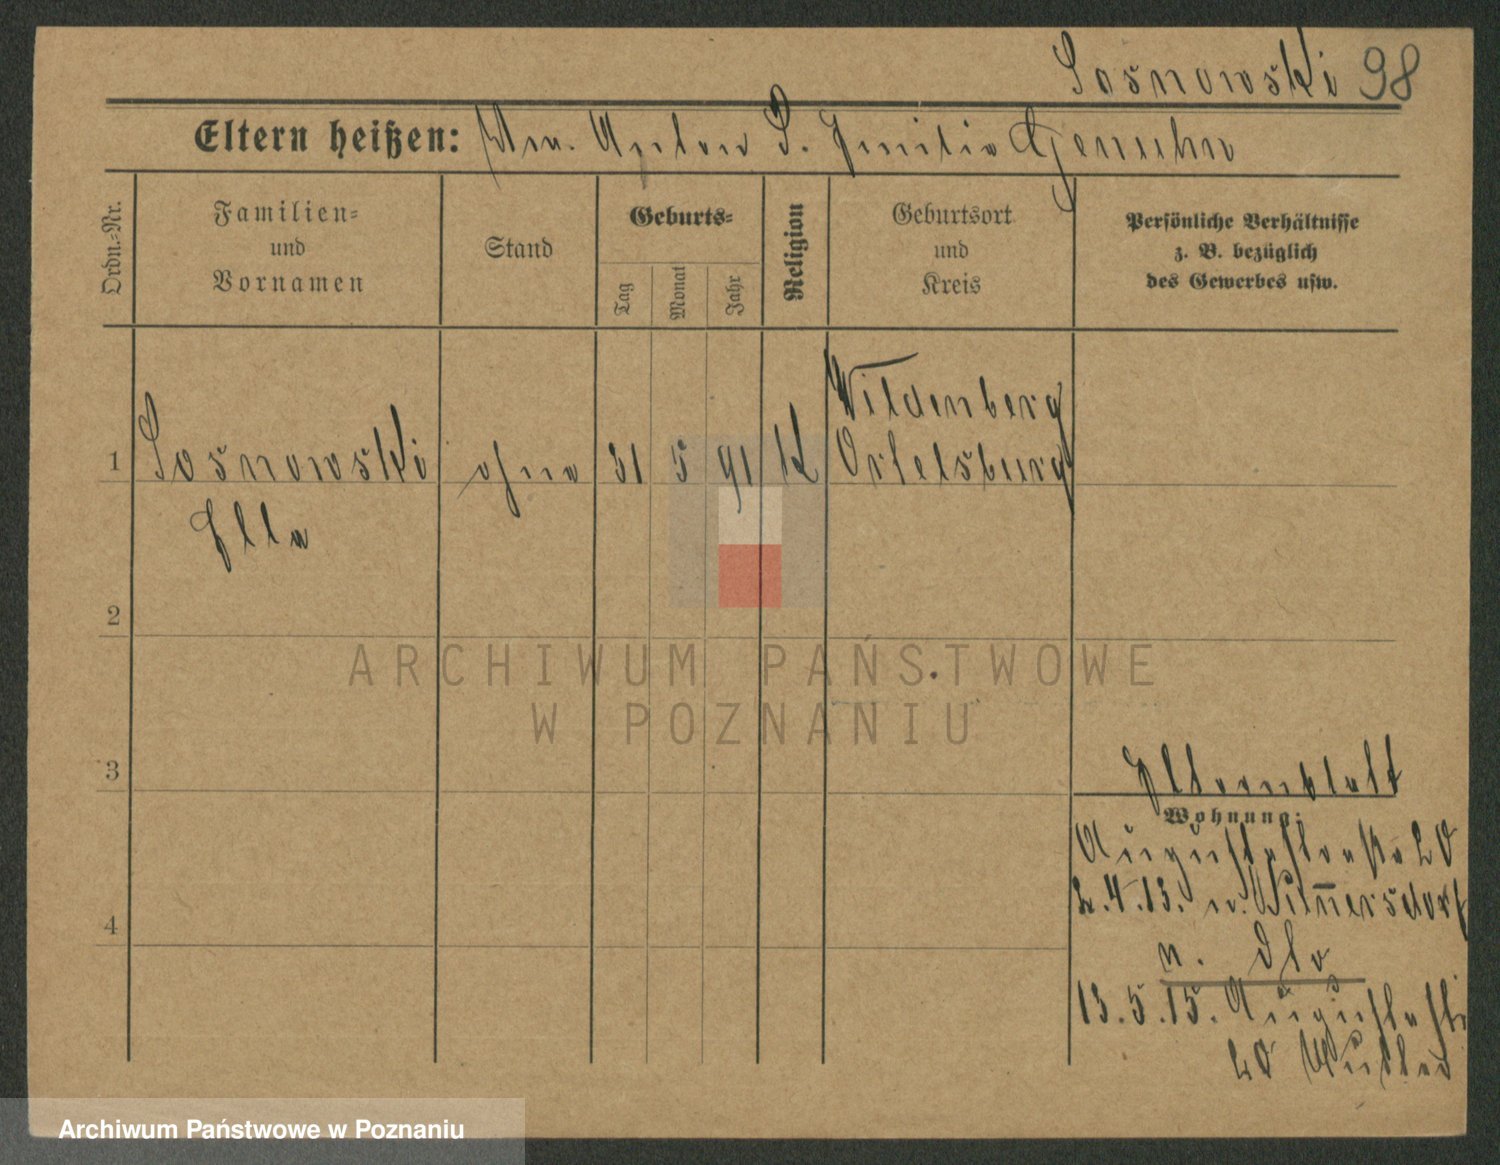 Sosnowski 98
Eltern heißen: Anton S. Emilie
Ordn.=Nr.
Familien=
und
Vornamen
Stand
Geburts=
Tag
Monat
Jahr
Religion
Geburtsort
und
Kreis
Persönliche Verhältnisse
z. B. bezüglich
des Gewerbes usw.
1 Sosnowski ohne 31 5 91 K Wildenberg
Ortelsburg
Ella
2
3
4
Elternblatt
Wohnung:
Augustastraße 20
2.4.13. n. Wilmersdorf
13.5.15. Augustastr
20 Mutter
ARCHIWUM PAŃSTWOWE
W POZNANIU
Archiwum Państwowe w Poznaniu